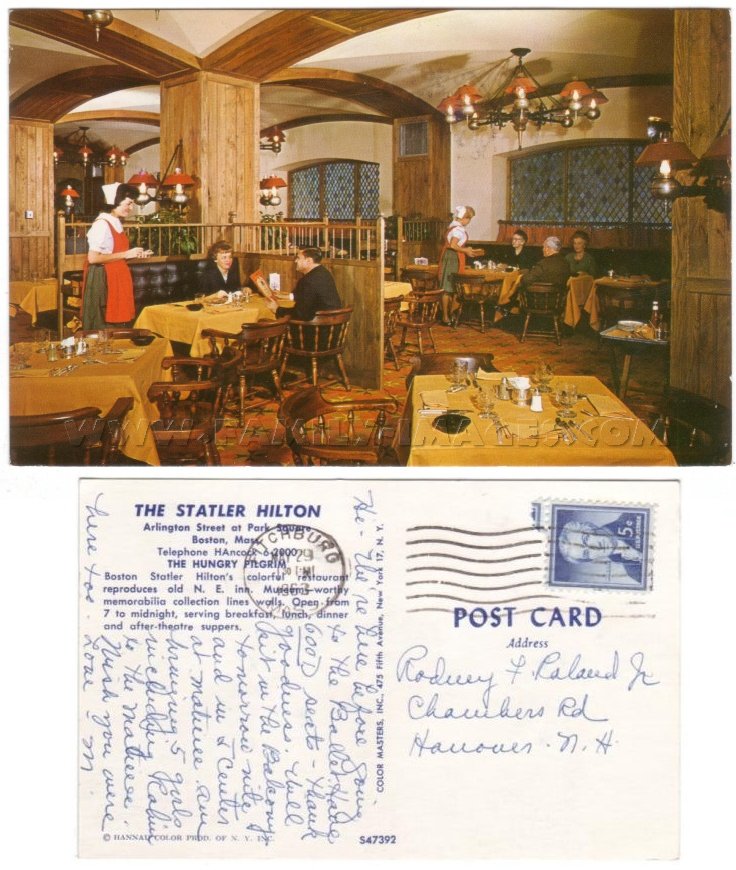 WWW.FAMILY-IMAGES.COM
THE STATLER HILTON
Arlington Street at Park Square
Boston, Mass.
Telephone HAncock 6-2000
THE HUNGRY PILGRIM
Boston Statler Hilton's colorful restaurant
reproduces old N. E. inn. Museum-worthy
memorabilia collection lines walls. Open from
7 to midnight, serving breakfast, lunch, dinner
and after-theatre suppers.
© HANNAU COLOR PROD. OF N. Y. INC.
COLOR MASTERS, INC., 475 Fifth Avenue, New York 17, N. Y.
S47392
Hi - We're here before going
to the Ballet. Have
GOOD seats - thank
goodness. Will
sit in the Balcony
tomorrow nite
and in center
at matinee. am
bringing 5 girls
including Robin
to the matinee.
Wish you were
here too.
Love M
FITCHBURG
1963
5¢
U.S. POSTAGE
POST CARD
Address
Rodney F Roland Jr
Chambers Rd
Hanover - N. H.